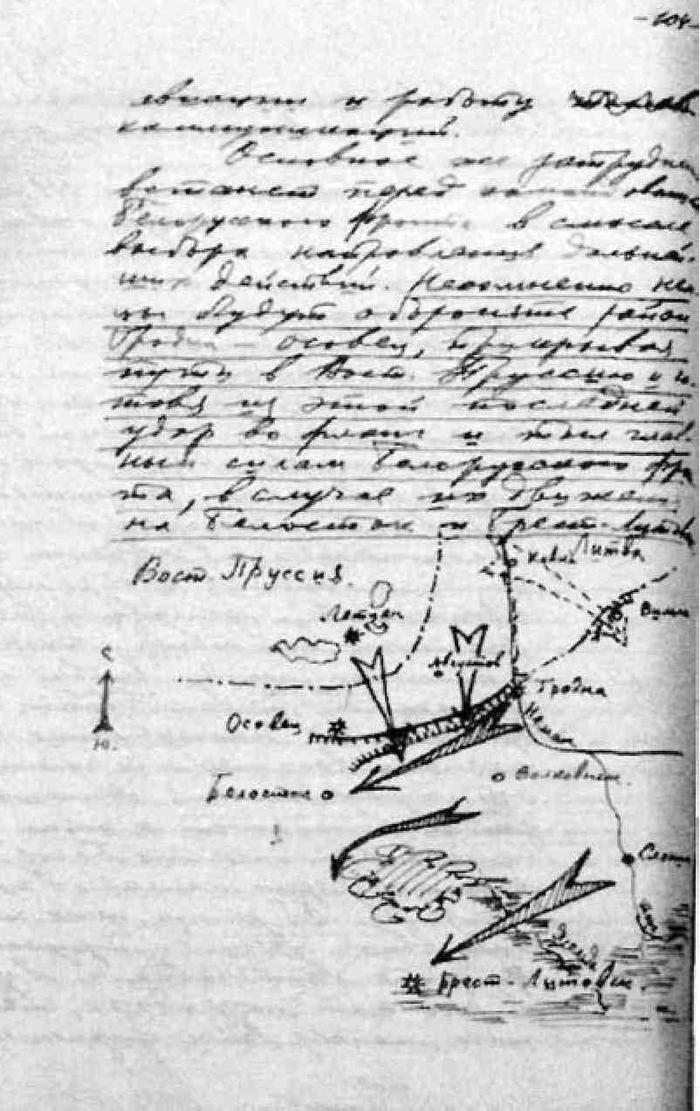 - 104 -
авиации и работу
коммуникаций.
Основное же затрудне
встанет перед
Белорусского фронта в смысле
выбора направления дальней-
ших действий. Несомненно нем
цы будут оборонять район
Гродна – Осовец, прикрывая
пути в Вост. Пруссию и го
товя из этой последней
удар во фланг и тыл глав
ным силам Белорусского фро
та, в случае их движения
на Белосток и Брест-Литов
Вост. Пруссия.
Литва
Ковна
Летцен
Вильн
Августов
с
ю.
Гродна
Осовец
Неман
Белосток
Волковыск
Слони
Брест-Литовск.